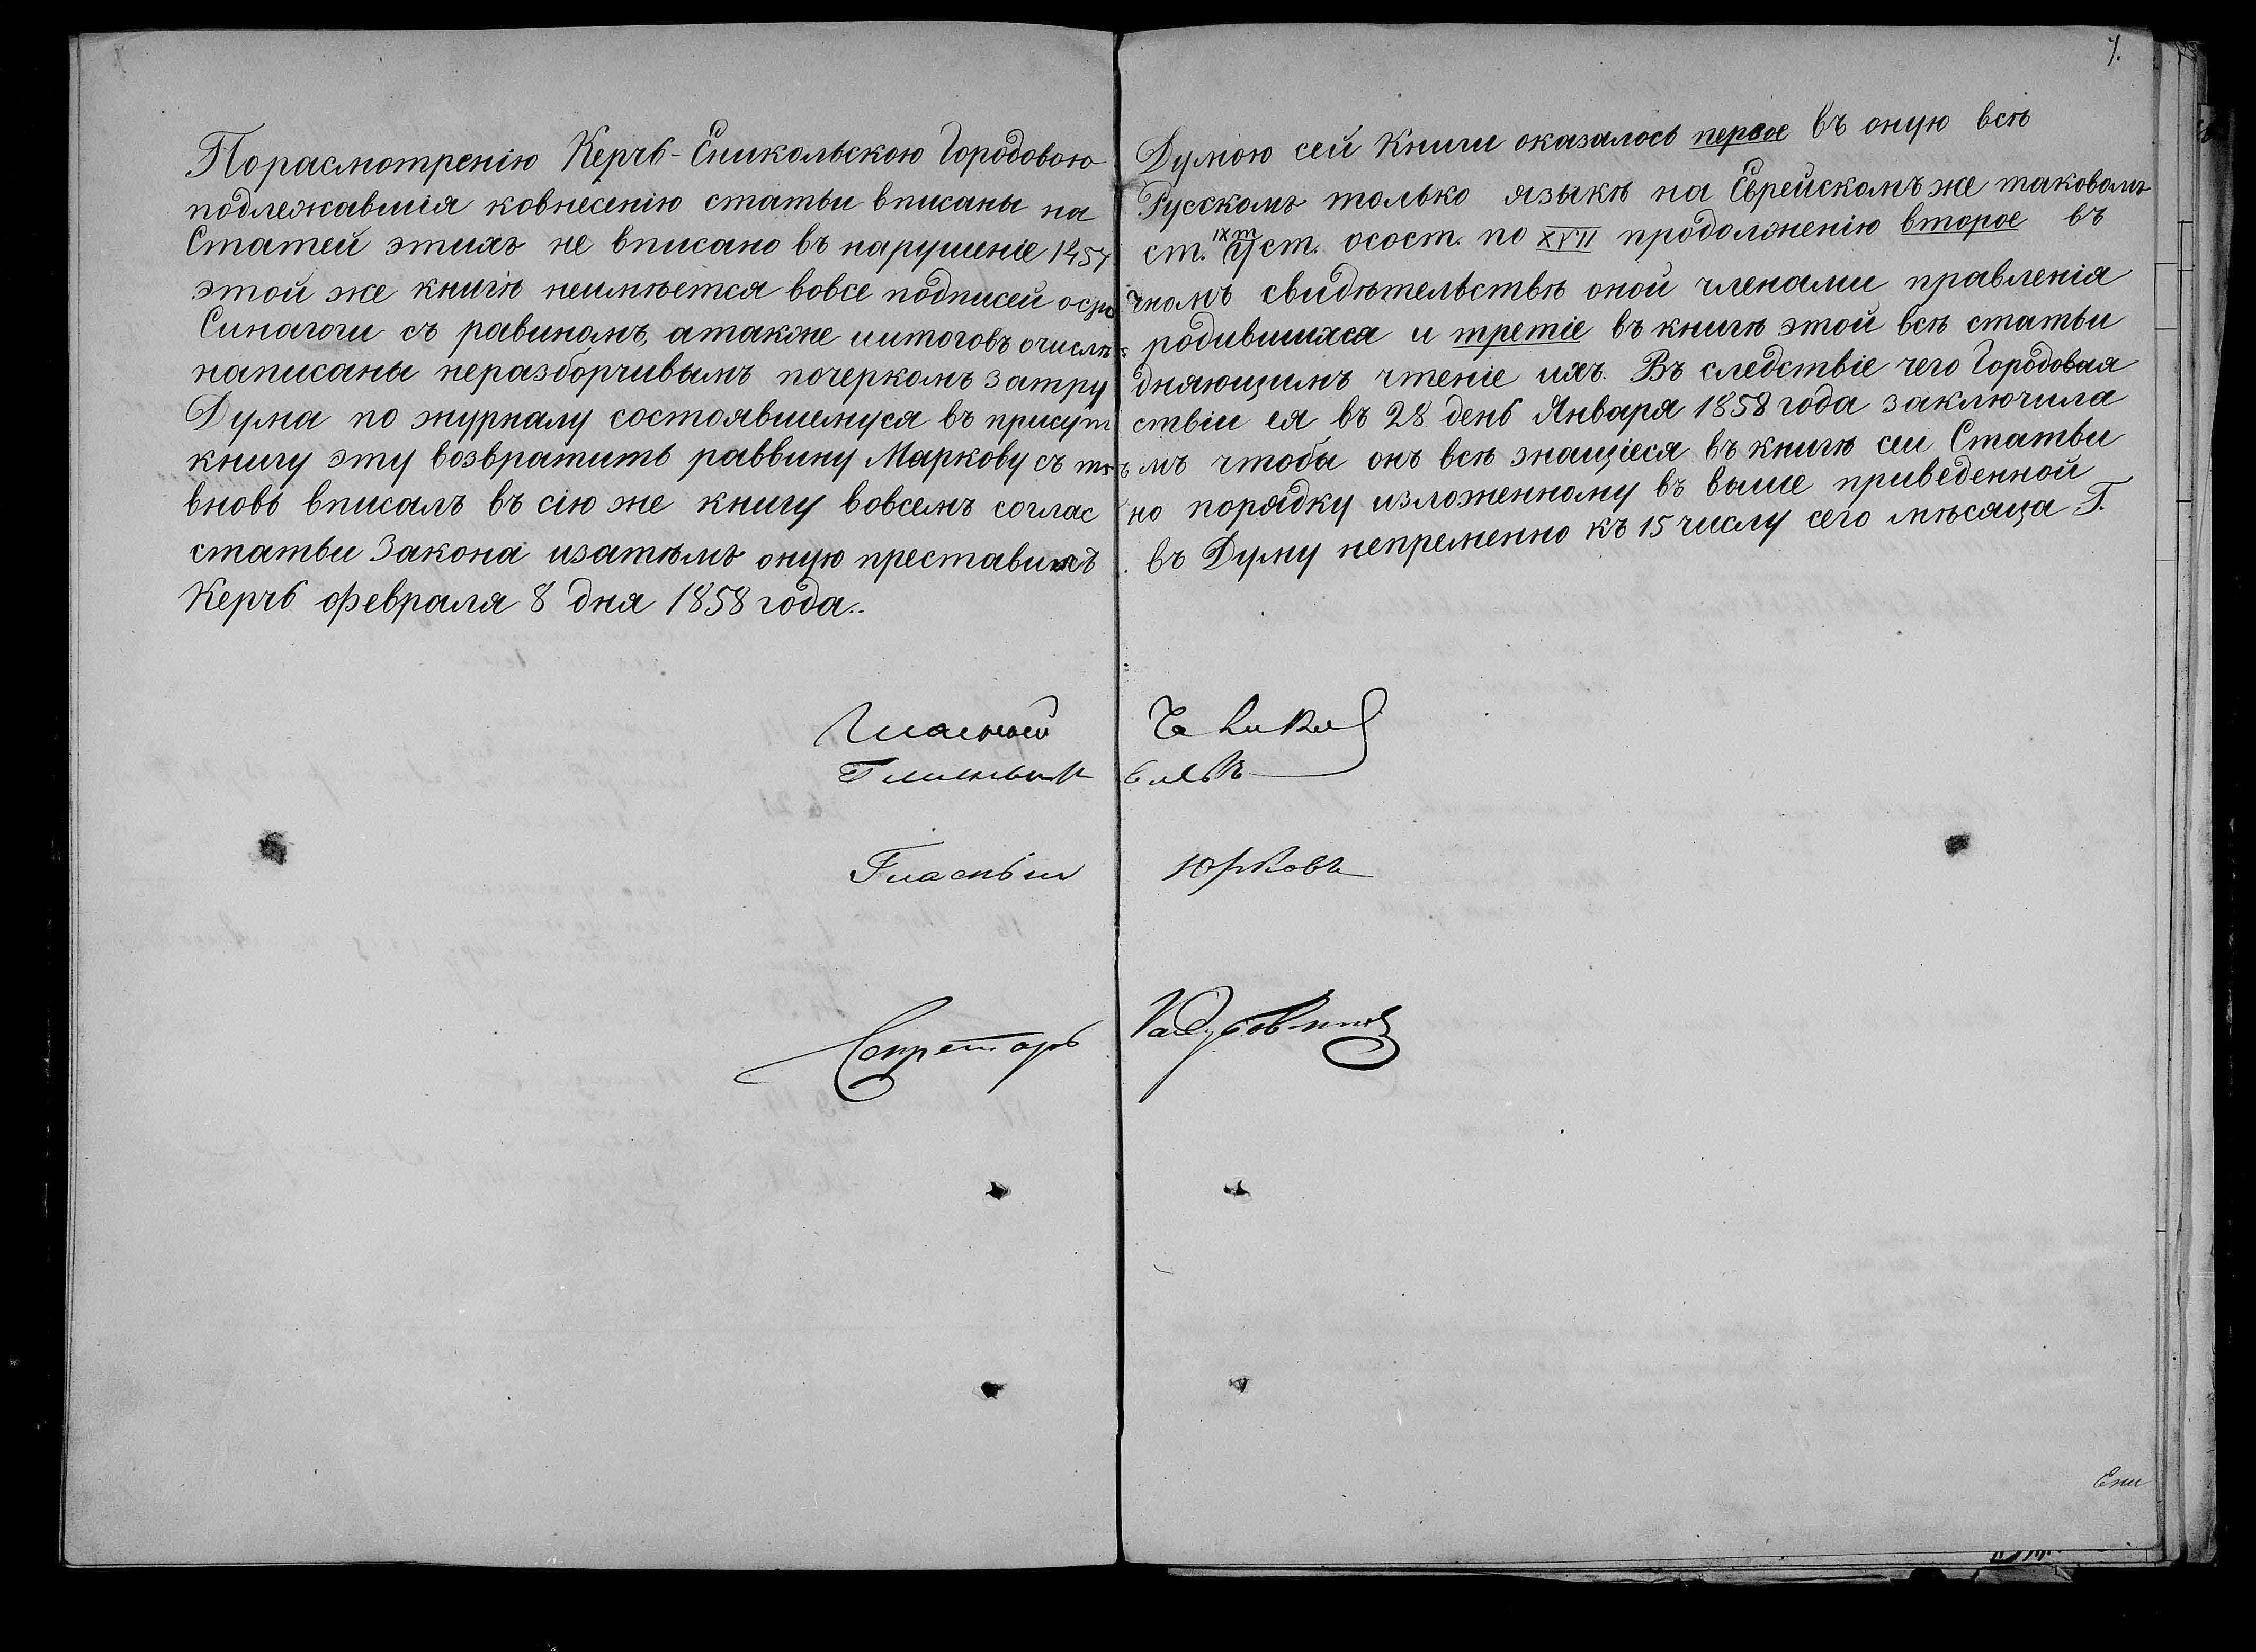 7.
Порасмотренію Керчь-Еникольскою Городовою Думою сей Книги оказалось первое въ оную всѣ
подлежавшія ковнесенію статьи вписаны на Русскомъ только языкѣ на Еврейскомъ же таковомъ
Статей этихъ не вписано въ нарушеніе 1457 ст. IX т уст. осост. по XVII продолженію второе въ
этой же книгѣ неимѣется вовсе подписей осрочномъ свидѣтельствѣ оной членами правленія
Синагоги съ равиномъ, атакже иитоговъ очислѣ родившихся и третіе въ книгѣ этой всѣ статьи
написаны неразборчивымъ почеркомъ затрудняющимъ чтеніе ихъ. Въ следствіе чего Городовая
Дума по журналу состоявшемуся въ присутствіи ея въ 28 день Января 1858 года заключила
книгу эту возвратить раввину Маркову съ тѣмъ чтобы онъ всѣ значіеся въ книгѣ сеи Статьи
вновь вписалъ въ сію же книгу вовсемъ согласно порядку изложенному въ выше приведенной
статьи Закона изатѣмъ оную преставилъ въ Думу непременно къ 15 числу сего мѣсяца Г.
Керчь февраля 8 дня 1858 года..
Гласный
Гласный Юрковъ
Секретарь
Ени